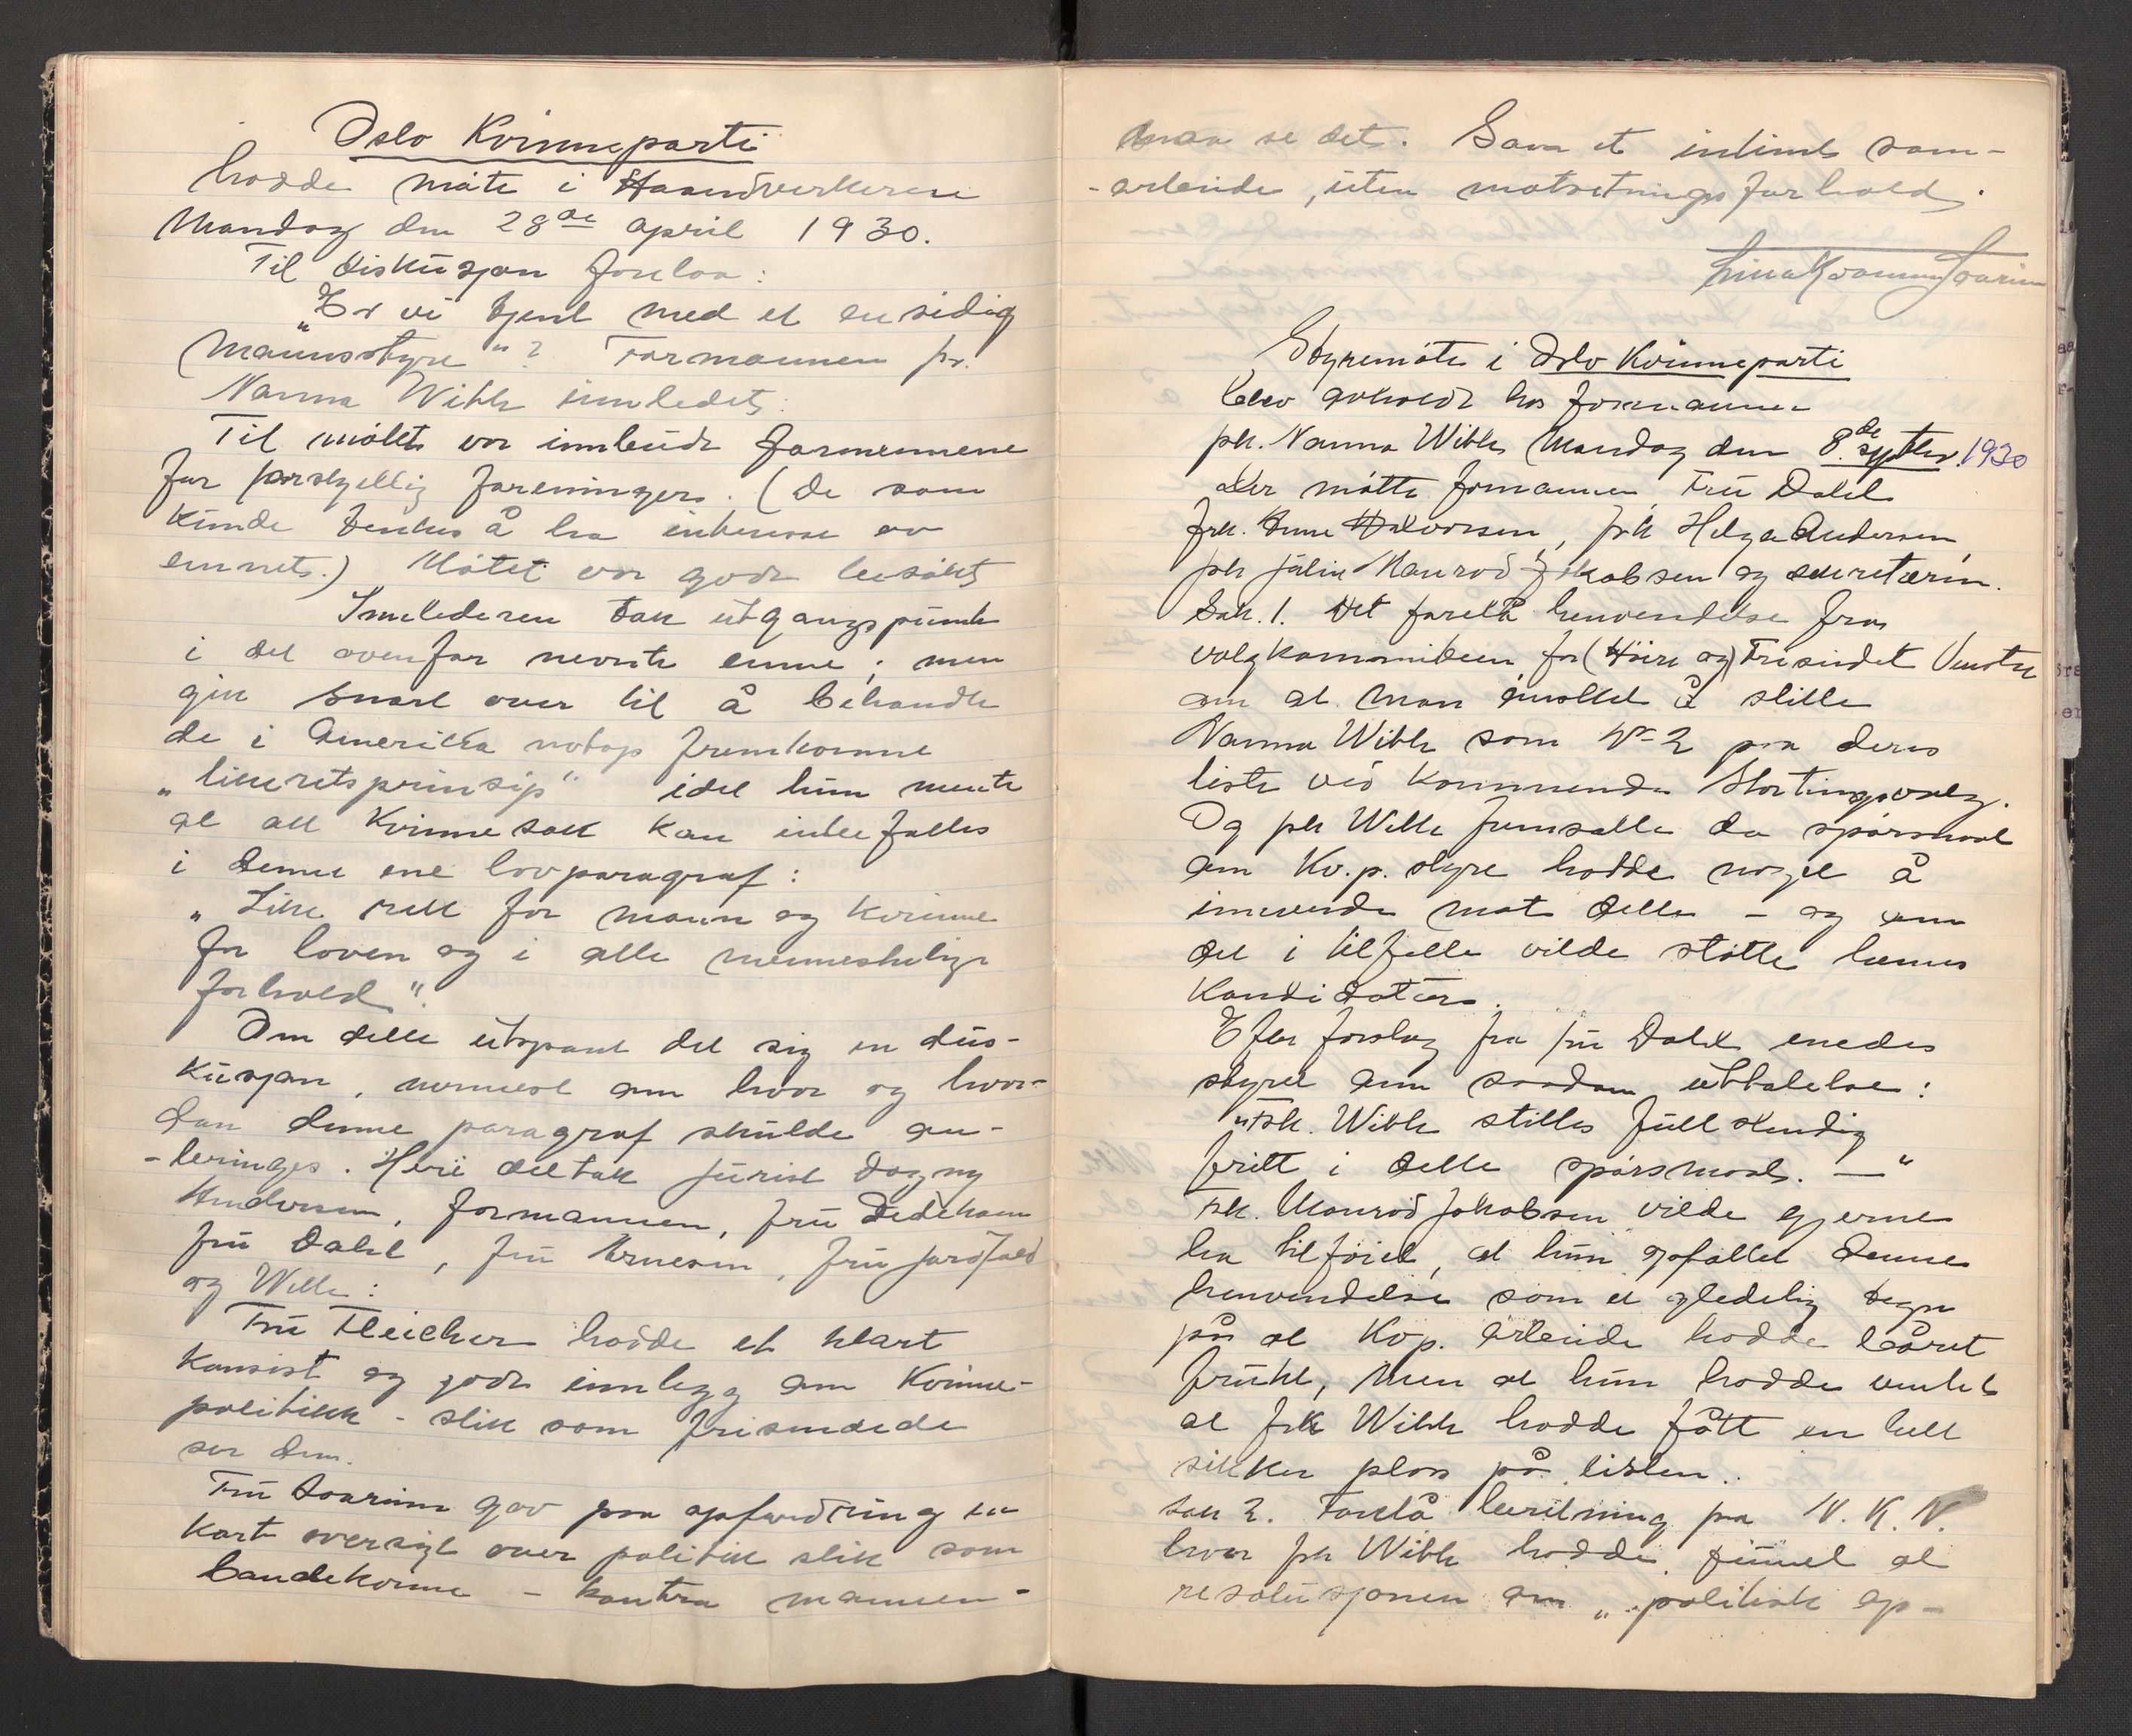 Oslo Kvinneparti
hadde møte i Haandverkeren
Mandag den 28de april 1930.
Til diskusjon forelaa:
"Er vi tjent med et ensidig
Mannsstyre"? Formannen fr.
Nanna With innledet:
Til møtet var innbudt formennene
for forskjellig foreninger. (De som
kunde tenkes å ha interesse av
emnet.) Møtet var godt besøkt
Innlederen tok utgangspunkt
i det ovenfor nevnte emne; men
gik snart over til å behandle
de i Amerika netop fremkomne
"likeretsprinsip" idet hun mente
at all kvinnesak kan innbefattes
i denne ene lovparagraf:
"Like rett for mann og kvinne
for loven og i alle menneskelige
forhold".
Om dette utspant det sig en dis-
kusjon, nermest om hvor og hvor-
dan denne paragraf skulde an-
-bringes. Heri deltok jurist Dagny
Andersen, formannen, fru Dedekam
fru Dahl, fru Arnesen, fru
og With:
Fru Fleicher hadde et klart
konsist og godt innlegg om kvinne-
politikk - slik som frisindede
ser dem.
Fru Soarinn gav paa opfordring en
kort oversigt over politik slik som
bandekonne - kontra mannen-
maa se det. Gava et intimt sam-
-arbeide, uten motsetningsforhold.
Styremøte i Oslo Kvinneparti
blev avholdt hos formannen
frk. Nanna With, Mandag den 8de septbr. 1930
Der møtte formannen, Fru Dahl
frk. Anne Halvorsen, frk Helga Andersen,
frk Julie Manrød Jakobsen og sekretæren.
Sak. 1. Det forelå henvendelse fra
valgkommiteen for (Høire og) Frisindet Venstre
om at man ønsket å stille
Nanna With som No 2 paa deres
liste ved kommende Stortingsvalg.
Og frk With fremsatte da spørsmaal
om Kv.p. styre hadde noget å
innvende mot dette - og om
det i tilfelle vilde støtte hennes
kandidatur.
Efter forslag fra fru Dahl enedes
styret om saadan uttalelse:
"Frk. With stilles fullstendig
fritt i dette spørsmaal. —"
Frk. Manrød Jakobsen vilde gjerne
ha tilføiet, at hun opfattet denne
henvendelse som et gledelig tegn
på at Kvp. arbeide hadde båret
frukt, men at hun hadde ventet
at frk With hadde fått en helt
sikker plass på listen.
Sak 2. Forelå beretning fra N. K. N.
hvor frk With hadde funnet at
resolusjonen om "politisk op-